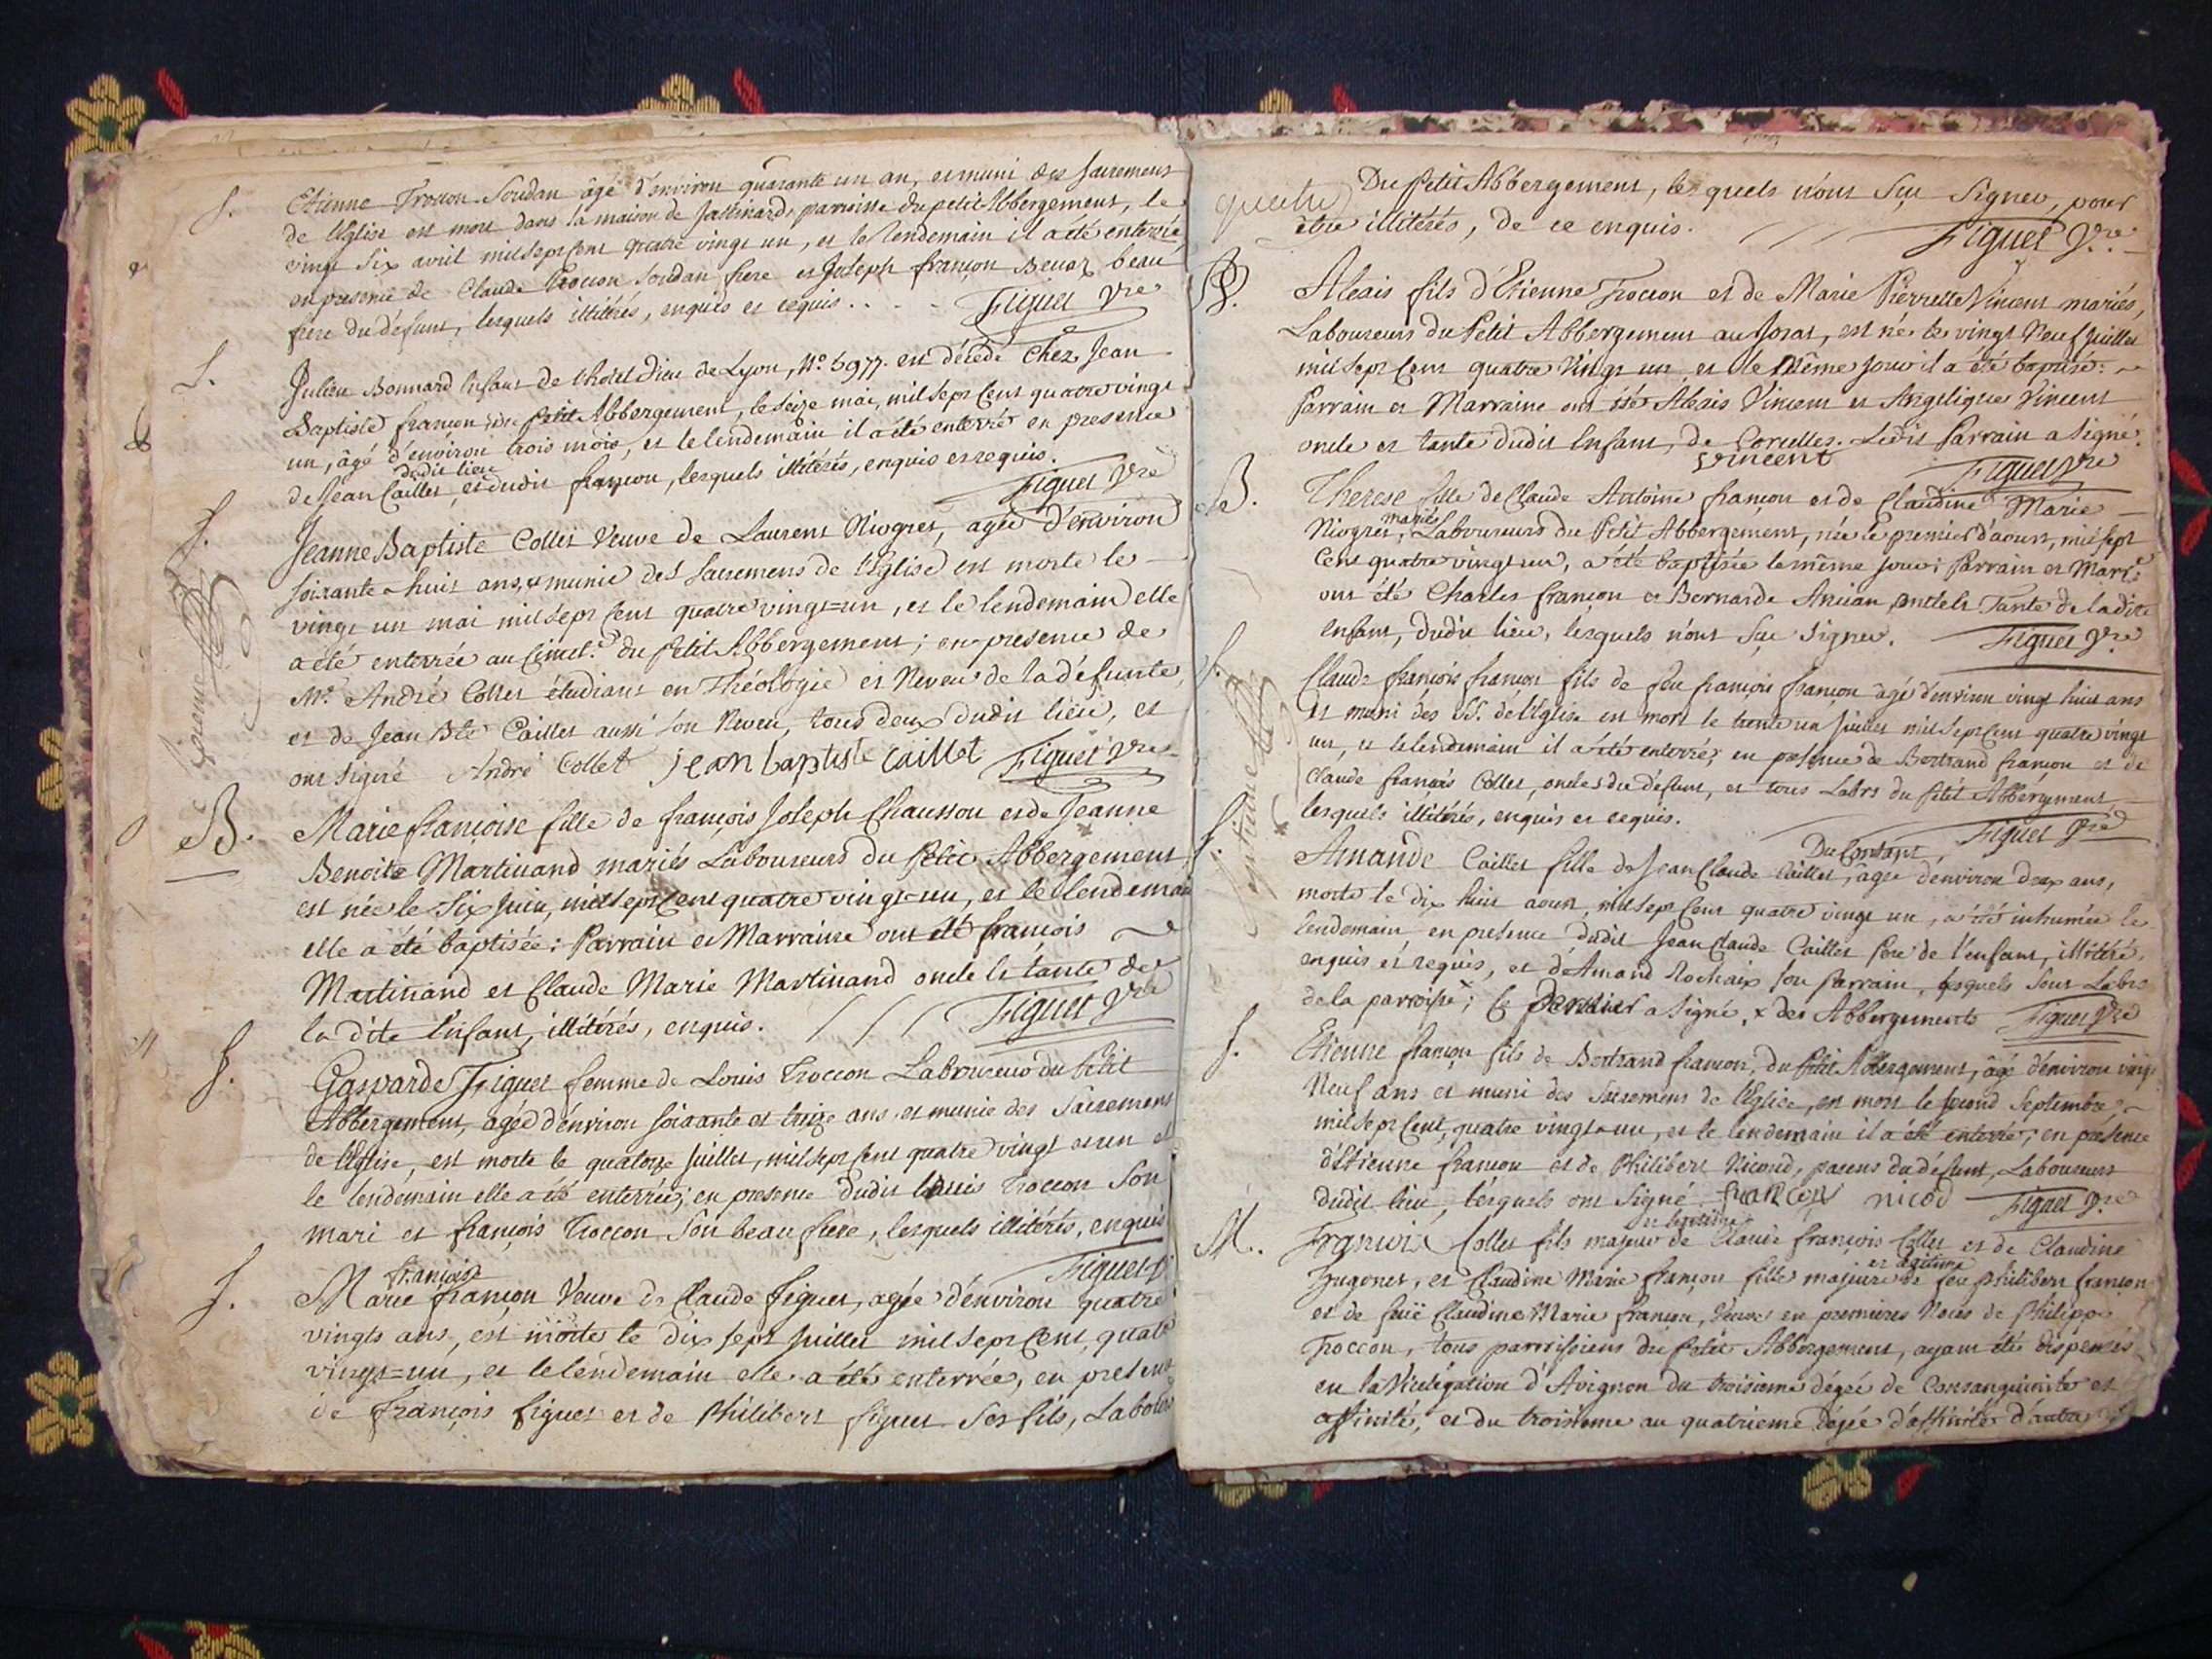 S. Etienne Troccon Soudan âgé d'environ quarante un an, et muni des sacremens
de l'Eglise est mort dans la maison de Jattinard, parroisse du petit Abbergement, le
vingt six avril mil sept cent quatre vingt un, et le lendemain il a été enterré,
en presence de Claude Troccon Soudan frere et Joseph françon beau
frere du défunt, lesquels illitérés, enquis et requis. Figuet Vre
S. Julien Bonnard Enfant de l'hotel Dieu de Lyon, No. 5977. est décédé chez Jean
Baptiste françon du petit Abbergement, le seize mai, mil sept cent quatre vingt
un, âgé d'environ trois mois, et le lendemain il a été enterré en presence
dudit lieu
de Jean Caillet, et dudit françon, lesquels illitérés, enquis et requis.
Figuet Vre
S. Jeanne Baptiste Collet Veuve de Laurent Niogret, agée d'environ
soixante-huit ans, et munie des Sacremens de l'Eglise est morte le
vingt un mai mil sept cent quatre vingt=un, et le lendemain elle
a été enterrée au Cimet.e du petit Abbergement; en presence de
Mr. André Collet étudiant en Théologie et Neveu de la défunte,
et de Jean Bte Caillet aussi son Neveu, tous deux dudit lieu, et
ont signé André Collet jean baptiste caillet Figuet Vre
B. Marie françoise fille de françois Joseph Chausson et de Jeanne
Benoite Martinand mariés Laboureurs du Petit Abbergement,
est née le six juin, mil sept cent quatre vingt-un, et le lendemain
elle a été baptisée: Parrain et Marraine ont été françois
Martinand et Claude Marie Martinand oncle et tante de
la dite Enfant, illitérés, enquis. Figuet Vre
S. Gasparde Figuet femme de Louis Troccon Laboureur du Petit
Abbergement, agée d'environ soixante et treize ans et munie des Sacremens
de l'Eglise, est morte le quatorze juillet, mil sept cent quatre vingt et un et
le lendemain elle a été enterrée; en presence dudit Louis Troccon son
mari et françois Troccon son beau frere, lesquels illitérés, enquis
Figuet V
françoise
S. Marie françon Veuve de Claude figuet, agée d'environ quatre
vingts ans, est morte le dix sept juillet mil sept cent, quatre
vingt=un, et le lendemain elle a été enterrée, en presence
de françois figuet et de Philibert figuet ses fils, Labours
Du Petit Abbergement, lesquels n'ont sçu signer, pour
être illitérés, de ce enquis. Figuet Vre
B. Alexis fils d'Etienne Troccon et de Marie Pierrette Vincent mariés,
Laboureurs du Petit Abbergement au Jorat, est né le vingt neuf juillet
mil sept cent quatre vingt un et le même jour il a été baptisé:
Parrain et Marraine ont été Alexis Vincent et Angelique Vincent
oncle et tante dudit Enfant, de Corcelles. Ledit Parrain a signé.
vincent Figuet Vre
B. Therese fille de Claude Antoine françon et de Claudine Marie
mariés
Niogret, Laboureurs du Petit Abbergement, née le premier d'aoust, mil sept
cent quatre vingt un, a été baptisée le même jour: Parrain et Marr.e
ont été Charles françon et Bernarde Ancian, oncle et Tante de la dite
enfant, dudit lieu, lesquels n'ont sçu signer. Figuet Vre
S. Claude françois françon fils de feu françois françon âgé d'environ vingt huit ans
et muni des SS. de l'Eglise est mort le trente un juillet mil sept cent quatre vingt
un, et le lendemain il a été enterré; en presence de Bertrand françon et de
Claude françois Collet, oncles du défunt, et tous Labrs du Petit Abbergement,
lesquels illitérés, enquis et requis. Figuet Vre
S. Amande Caillet fille de Jean Claude Caillet, agée d'environ deux ans,
morte le dix huit aoust, mil sept cent quatre vingt un, a été inhumée le
lendemain en presence dudit Jean Claude Caillet Pere de l'enfant, illitéré,
enquis et requis, et d'Amand Rochaix son Parrain, lesquels sont Labrs
de la parroisse x; le Dernier a signé. x des Abbergements Figuet Vre
S. Etienne françon fils de Bertrand françon, du Petit Abbergement, âgé d'environ vingt
Neuf ans et muni des Sacremens de l'Eglise, est mort le second Septembre
mil sept cent, quatre vingt=un, et le lendemain il a été enterré; en présence
d'Etienne françon et de Philibert Nicoud, parens du défunt, Laboureurs
dudit lieu, lesquels ont signé. francon nicod Figuet Vre
M. François Collet fils majeur de Claude françois Collet et de Claudine
Hugonet, et Claudine Marie françon fille majeure de feu Philibert françon
et de feuë Claudine Marie françon, Veuve en premieres Noces de Philippe
Troccon, tous parroissiens du Petit Abbergement, ayant été dispensés
en la Vicelégation d'Avignon du troisieme dégré de Consanguinité et
affinité, et du troisieme au quatrieme dégré d'affinité d'autre